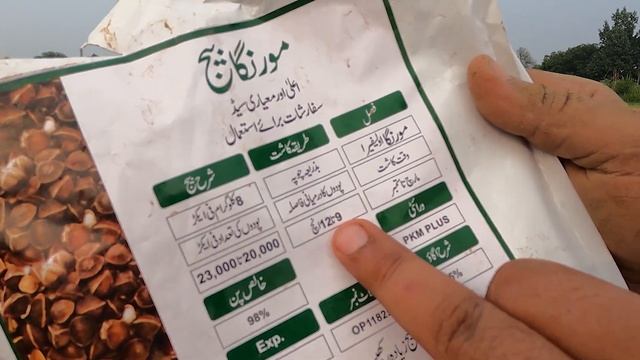 مورنگا بیج
اعلیٰ اور معیاری سیڈ
سفارشات برائے استعمال
فصل
مورنگا اولیفرا
وقت کاشت
مارچ تا ستمبر
ورائٹی
PKM PLUS
شرح اگاؤ
طریقہ کاشت
بذریعہ چوپہ
پودوں کا درمیانی فاصلہ
9 تا 12 انچ
نمبر
OP1182
شرح بیج
8 کلوگرام فی ایکڑ
پودوں کی تعداد فی ایکڑ
20,000 تا 23,000
خالص پن
98%
Exp.